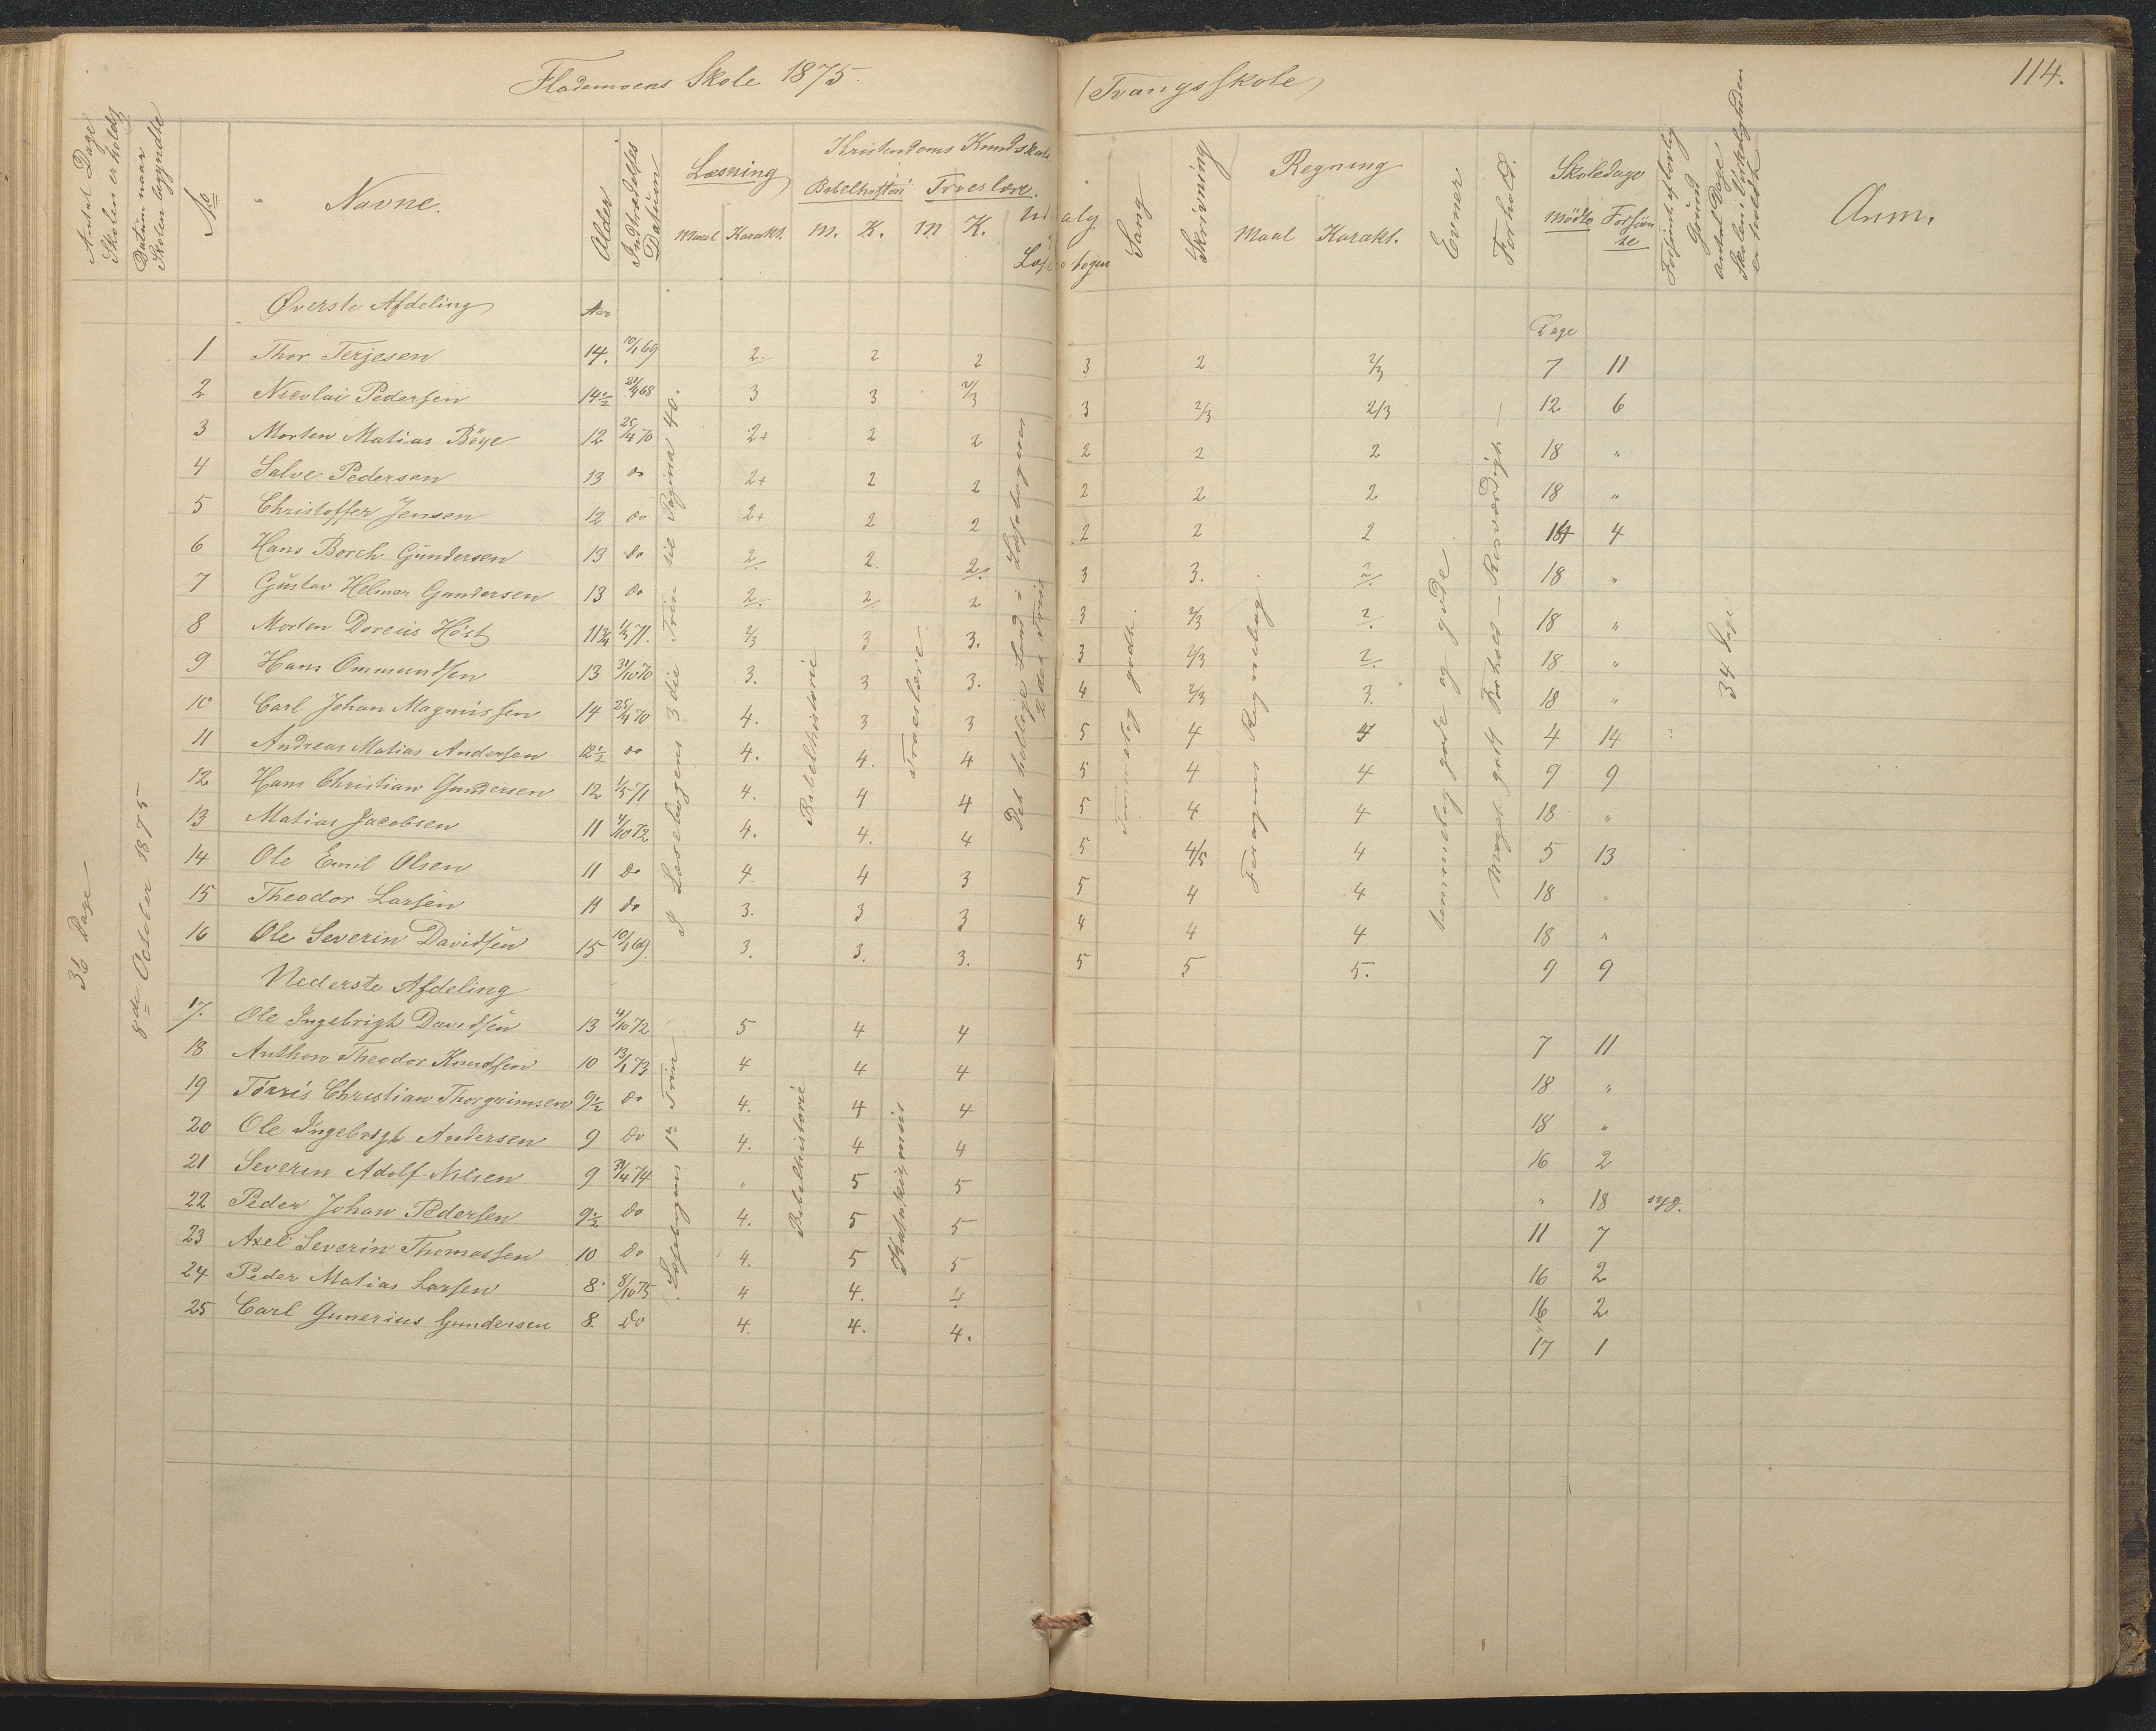 Flademoens Skole 1875. (Tvangsskole) 114.
Antal Dage Skolen er holdt
Datum naar Skolen begyndte
No
Navne.
Alder
Indtrædelses Datum
Læsning
Maal Karakt.
Kristendoms Kundskab
Bibelhistori Troeslære.
M. K. M K.
Udvalg
Læsebogen
Sang
Skrivning
Regning
Maal Karakt.
Evner
Forhold.
Skoledage
Mødte Forsømte
Forsømt af lovlig Grund
Antal Dage Skolen i Virkeligheden er holdt
Anm.
36 Dage
8de October 1875
Øverste Afdeling Aar Dage
1 Thor Terjesen 14. 10/1 69 2. 2 2 3 2 2/3 7 11
2 Nicolai Pedersen 14½ 3 3 2/3 3 2/3 2/3 12 6
3 Morten Matias Böye 12 25/4 70 2+ 2 2 2 2 2 18 "
4 Salve Pedersen 13 do 2+ 2 2 2 2 2 18 "
5 Christoffer Jensen 12 do 2+ 2 2 2 2 2 14 4
6 Hans Borch Gundersen 13 do 2. 2. 2. 3 3. 2. 18 "
7 Gustav Helmer Gundersen 13 do 2. 2 2 3 2/3 2. 18 "
8 Morten Doreus Höst 11¾ 2/3 3 3. 3 2/3 2. 18 "
9 Hans Ommundsen 13 31/10 70 3. 3 3. 4 2/3 3. 18 "
10 Carl Johan Magnussen 14 25/4 70 4. 3 3 5 4 4 4 14
11 Andreas Matias Andersen 12½ do 4. 4. 4 5 4 4 9 9
12 Hans Christian Gundersen 12 1/5 71 4. 4 4 5 4 4 18 "
13 Matias Jacobsen 11 4/10 72 4. 4. 4 5 4/5 4 5 13
14 Ole Emil Olsen 11 do 4. 4 3 5 4 4 18 "
15 Theodor Larsen 11 do 3. 3 3 4 4 4 18 "
16 Ole Severin Davidsen 15 10/1 69. 3. 3. 3. 5 5 5. 9 9
I Læsebogens 3die Trin til Pagina 40.
Bibelhistorie
Troeslære
Det hellige Land i Læsebogens 2det Trin
Temmelig godt.
Foragens Regnebog.
temmelig gode og gode.
Meget godt Forhold — Rosværdigt —
34 Dage
Nederste Afdeling
17. Ole Ingebrigt Davidsen 13 4/10 72 5 4 4 7 11
18 Anthon Theodor Knudsen 10 13/1 73 4 4 4 18 "
19 Tørris Christian Thorgrimsen 9½ do 4. 4 4 18 "
20 Ole Ingebrigt Andersen 9 do 4. 4 4 16 2
21 Severin Adolf Nilsen 9 30/4 74 " 5 5 " 18 syg.
22 Peder Johan Pedersen 9½ do 4. 5 5 11 7
23 Axel Severin Thomassen 10 do 4. 5 5 16 2
24 Peder Matias Larsen 8 8/10 75 4 4. 4 16 2
25 Carl Gunerius Gundersen 8. do 4. 4. 4. 17 1
Læsebogens 1ste Trin
Bibelhistorie
Katekismus